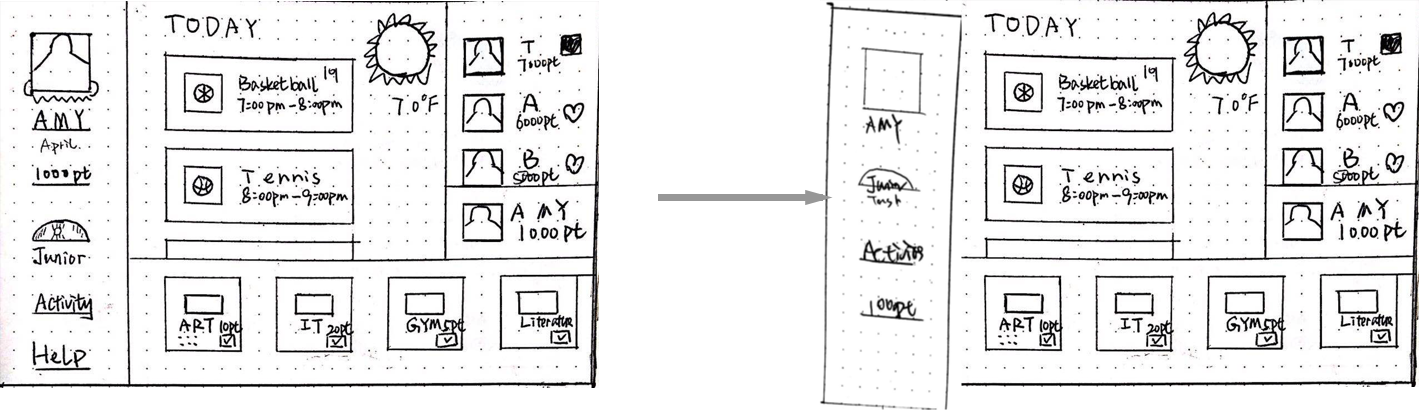 AMY
April.
1000pt
Junior
Activity
Help
TODAY
Basketball 19
7:00pm-8:00pm
Tennis
8:00pm-9:00pm
70°F
T
7000pt
A
6000pt
B
5000pt
AMY
1000pt
ART 10pt
IT 20pt
GYM 5pt
Literatur
AMY
Junior
Activities
1000pt
TODAY
Basketball 19
7:00pm-8:00pm
Tennis
8:00pm-9:00pm
70°F
T
7000pt
A
6000pt
B
5000pt
AMY
1000pt
ART 10pt
IT 20pt
GYM 5pt
Literatur